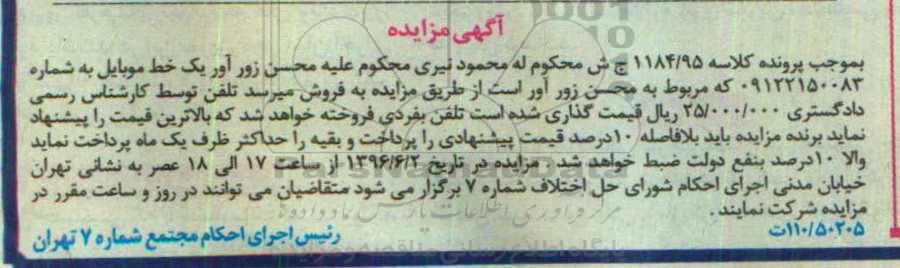 آگهی مزایده
بموجب پرونده کلاسه ۱۱۸۴/۹۵ ج ش محکوم له محمود نیری محکوم علیه محسن زور آور یک خط موبایل به شماره
۰۹۱۲۲۱۵۰۰۸۳ که مربوط به محسن زور آور است از طریق مزایده به فروش میرسد تلفن توسط کارشناس رسمی
دادگستری ۲۵/۰۰۰/۰۰۰ ریال قیمت گذاری شده است تلفن بفردی فروخته خواهد شد که بالاترین قیمت را پیشنهاد
نماید برنده مزایده باید بلافاصله ۱۰درصد قیمت پیشنهادی را پرداخت و بقیه را حداکثر ظرف یک ماه پرداخت نماید
والا ۱۰درصد بنفع دولت ضبط خواهد شد . مزایده در تاریخ ۱۳۹۶/۶/۲ از ساعت ۱۷ الی ۱۸ عصر به نشانی تهران
خیابان مدنی اجرای احکام شورای حل اختلاف شماره ۷ برگزار می شود متقاضیان می توانند در روز و ساعت مقرر در
مزایده شرکت نمایند .
۱۱۰/۵۰۲۰۵ت
رئیس اجرای احکام مجتمع شماره ۷ تهران
ParsNamadData
مرکز فرآوری اطلاعات پارس نماد داده ها